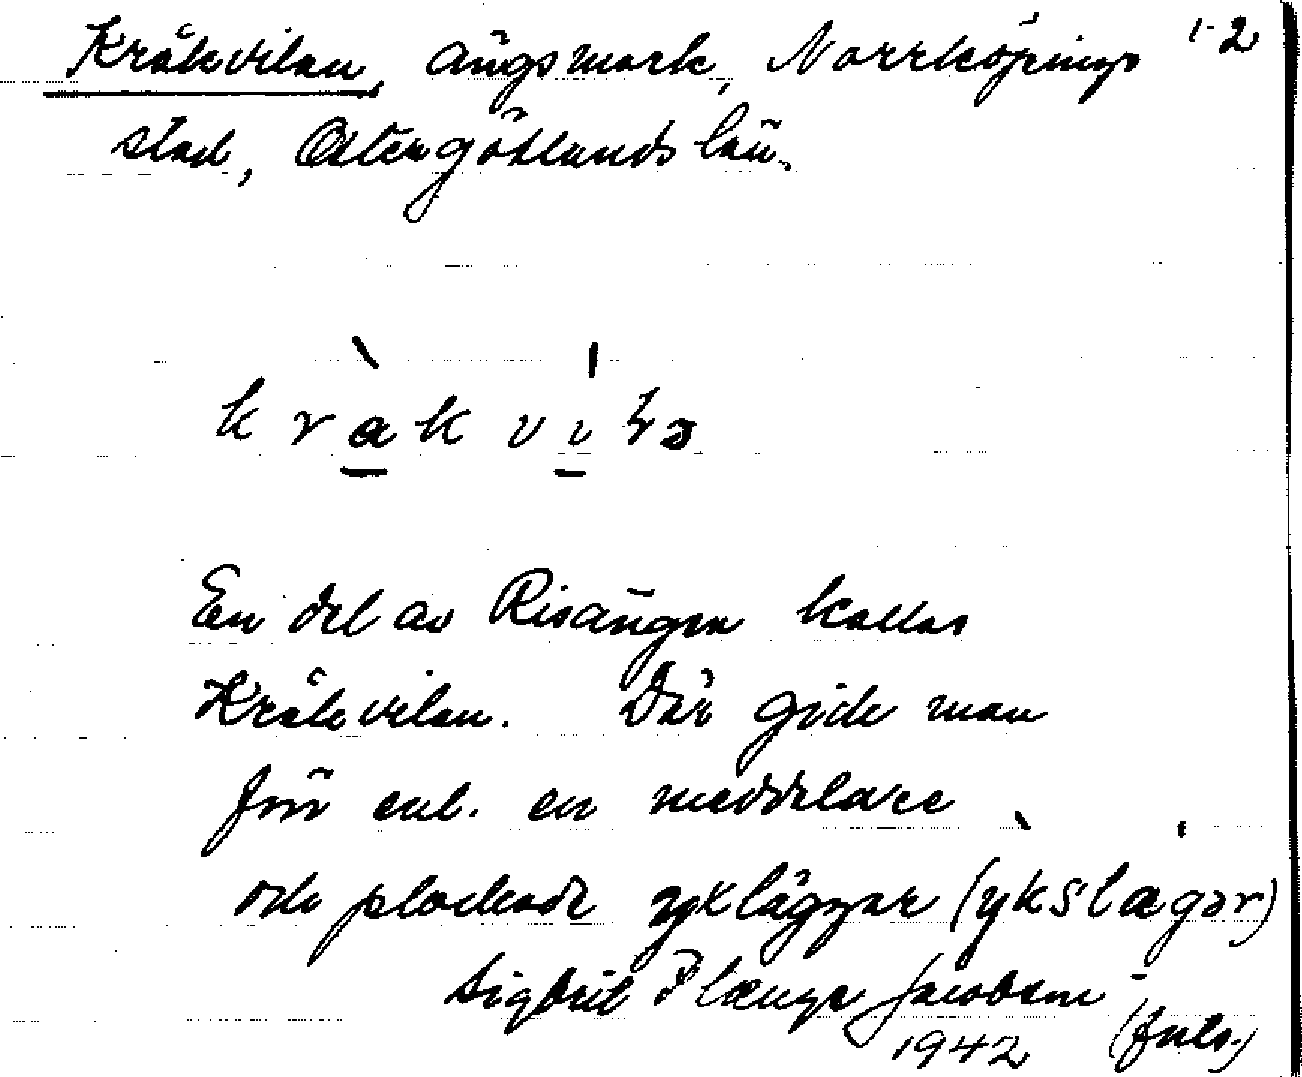 Kråkvilan, ängsmark, Norrköpings 1-2
stad, Östergötlands län.
En del av Risängen kallas
Kråkvilan. Där gick man
förr enl. en meddelare
och plockade yxläggar
Sigbrit Plænge Jacobson
1942 (forts.)